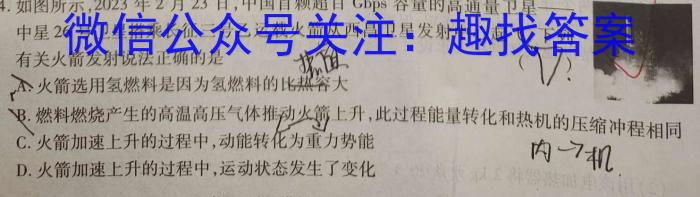 4. 如图所示,2023 年 2 月 23 日,中国首颗超百 Gbps 容量的高通量卫星——
中星 26
微信公众号关注:趣找答案
有关火箭发射说法正确的是
热值
(√)?
A. 火箭选用氢燃料是因为氢燃料的比热容大
B. 燃料燃烧产生的高温高压气体推动火箭上升,此过程能量转化和热机的压缩冲程相同
C. 火箭加速上升的过程中,动能转化为重力势能
内→机
D. 火箭加速上升的过程中,运动状态发生了变化